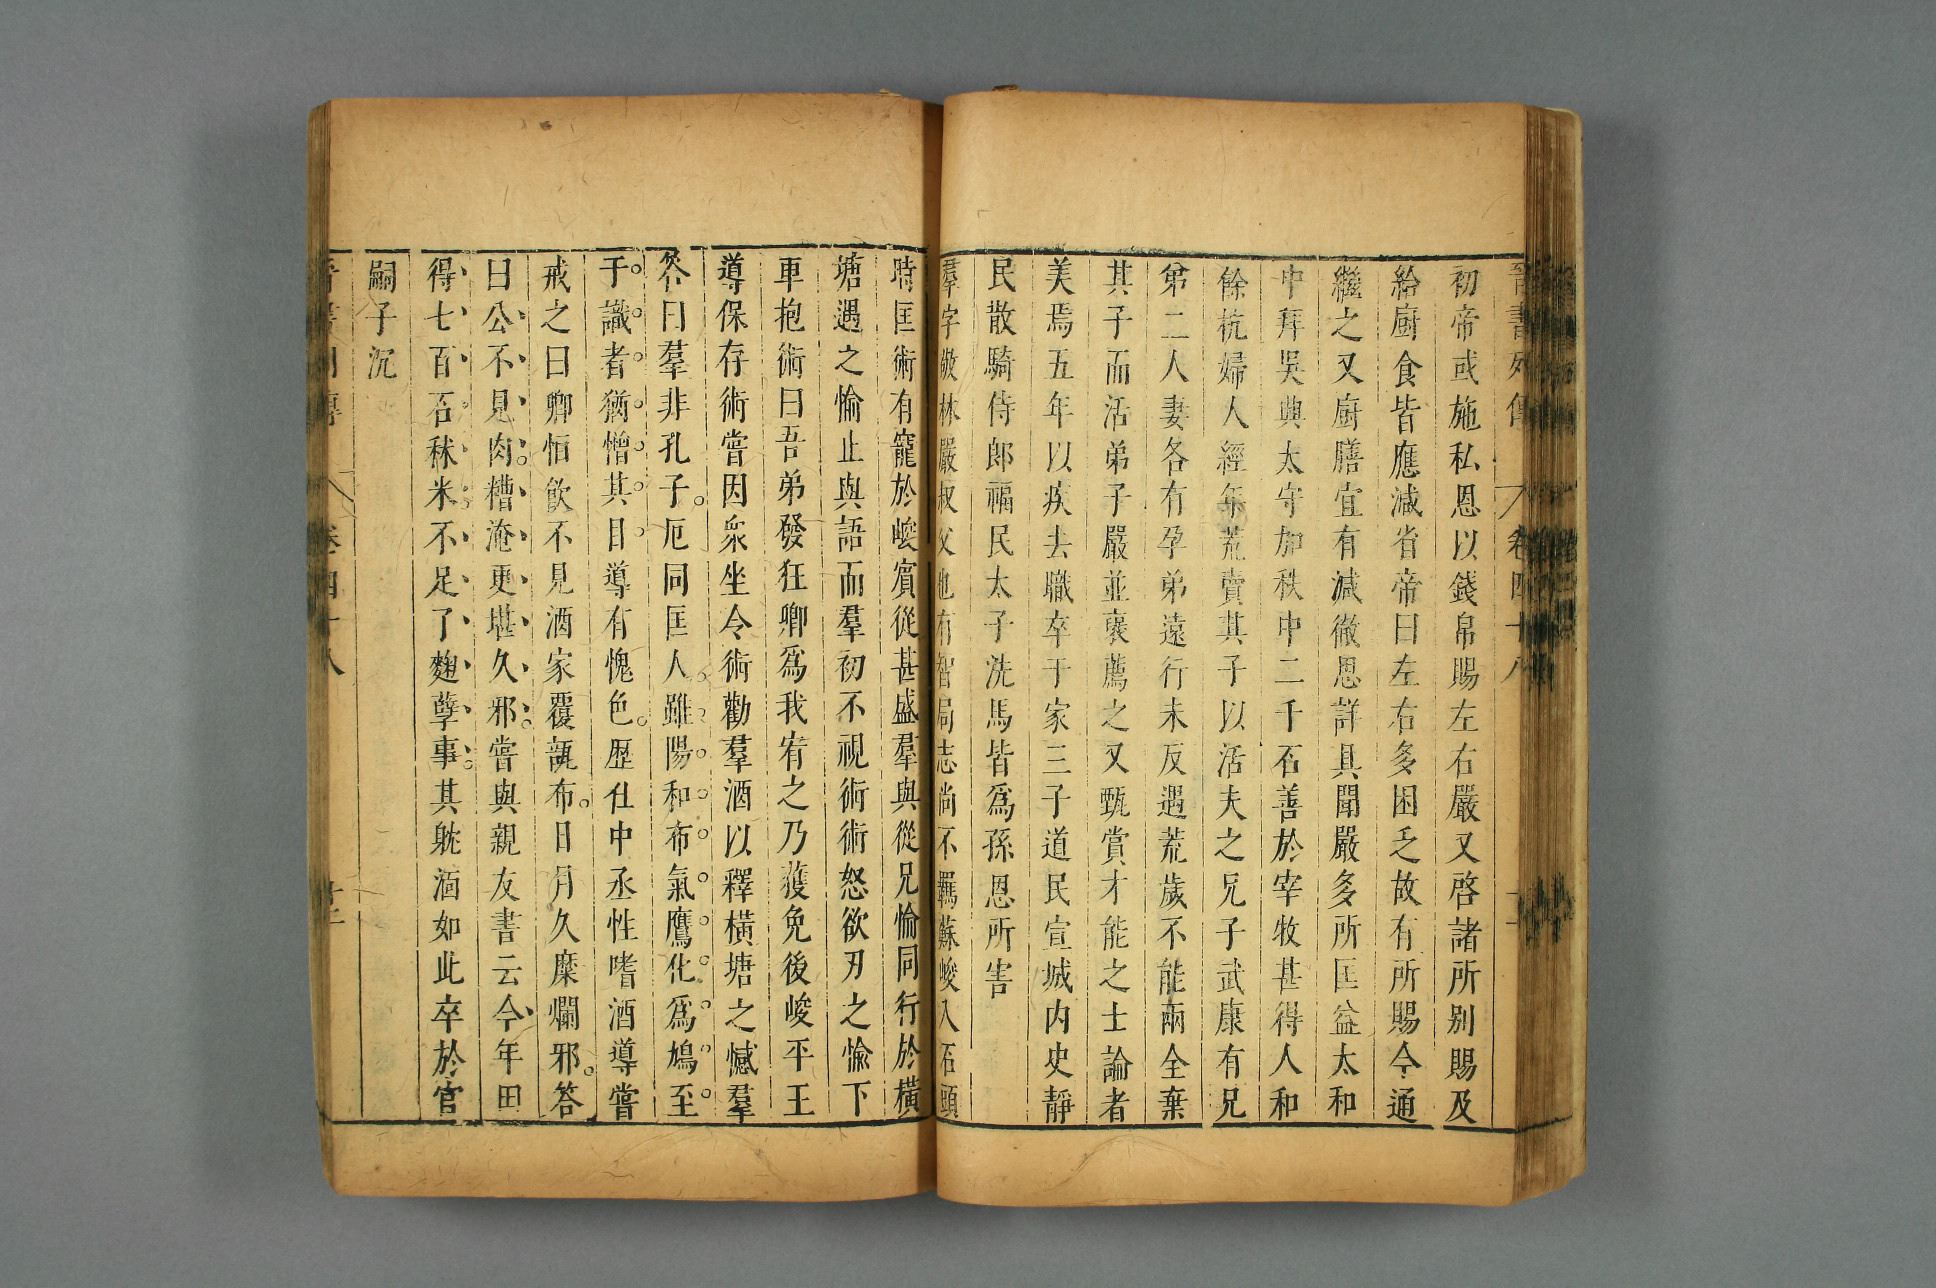 晉書列傳 卷四十八
初帝或施私恩以錢帛賜左右嚴又啓諸所别賜及
給廚食皆應減省帝曰左右多困乏故有所賜今通
繼之又廚膳宜有減徹思詳具聞嚴多所匡益太和
中拜吳興太守加秩中二千石善於宰牧甚得人和
餘杭婦人經年荒賣其子以活夫之兄子武康有兄
弟二人妻各有孕弟遠行未反遇荒歲不能兩全棄
其子而活弟子嚴並襃薦之又甄賞才能之士論者
美焉五年以疾去職卒于家三子道民宣城内史靜
民散騎侍郎福民太子洗馬皆爲孫恩所害
羣字敬林嚴叔父也有智局志尚不羈蘇峻入石頭
時匡術有寵於峻賓從甚盛羣與從兄愉同行於横
塘遇之愉止與語而羣初不視術術怒欲刃之愉下
車抱術曰吾弟發狂卿爲我宥之乃獲免後峻平王
導保存術嘗因衆坐令術勸羣酒以釋橫塘之憾羣
答曰羣非孔子厄同匡人雖陽和布氣鷹化爲鳩至
于識者猶憎其目導有愧色歷仕中丞性嗜酒導嘗
戒之曰卿恒飲不見酒家覆瓿布日月久糜爛邪答
曰公不見肉糟淹更堪久邪嘗與親友書云今年田
得七百石秫米不足了麴糵事其躭湎如此卒於官
嗣子沉
晉書列傳 卷四十八